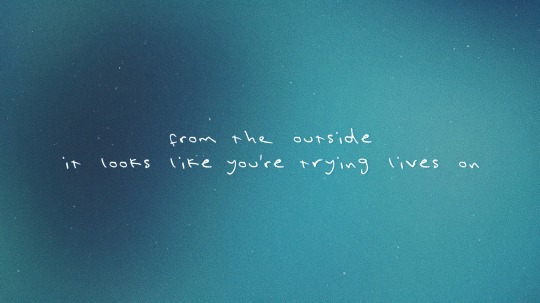 from the outside
it looks like you're trying lives on